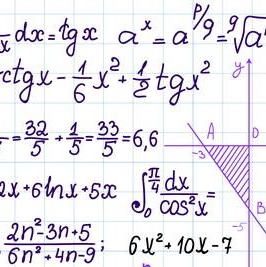 x dx = tg x   a^x = a^{p/q} = ^q√a
rctg x - 1/6 x² + 1/2 tg x²
= 32/5 + 1/5 = 33/5 = 6,6
y
A 0
-3
2x + 6 ln x + 5x   ∫₀^{π/4} dx/cos²x =
B
-5
2n² - 3n + 5 / 6n² + 4n - 9 ;   6x² + 10x - 7